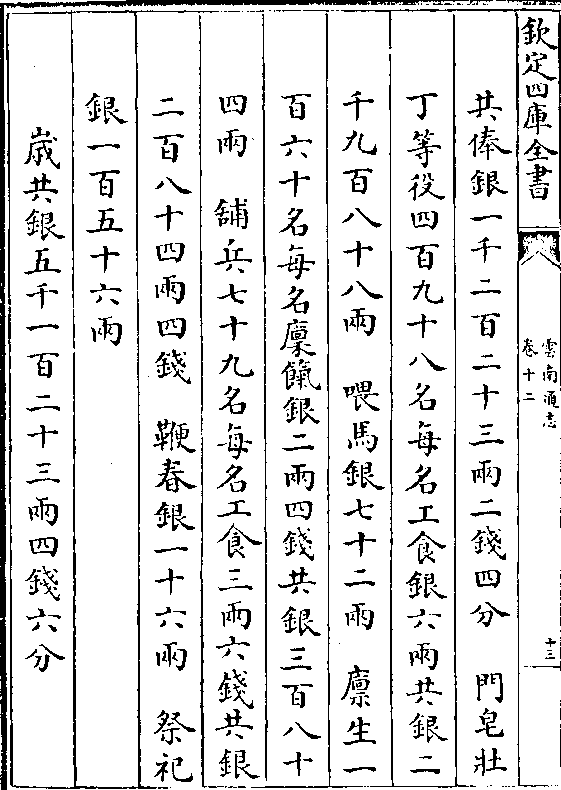 欽定四庫全書
雲南通志
卷十二
十三
共俸銀一千二百二十三兩二錢四分　門皂壯
丁等役四百九十八名每名工食銀六兩共銀二
千九百八十八兩　喂馬銀七十二兩　廪生一
百六十名每名廪餼銀二兩四錢共銀三百八十
四兩　舖兵七十九名每名工食三兩六錢共銀
二百八十四兩四錢　鞭春銀一十六兩　祭祀
銀一百五十六兩
歳共銀五千一百二十三兩四錢六分